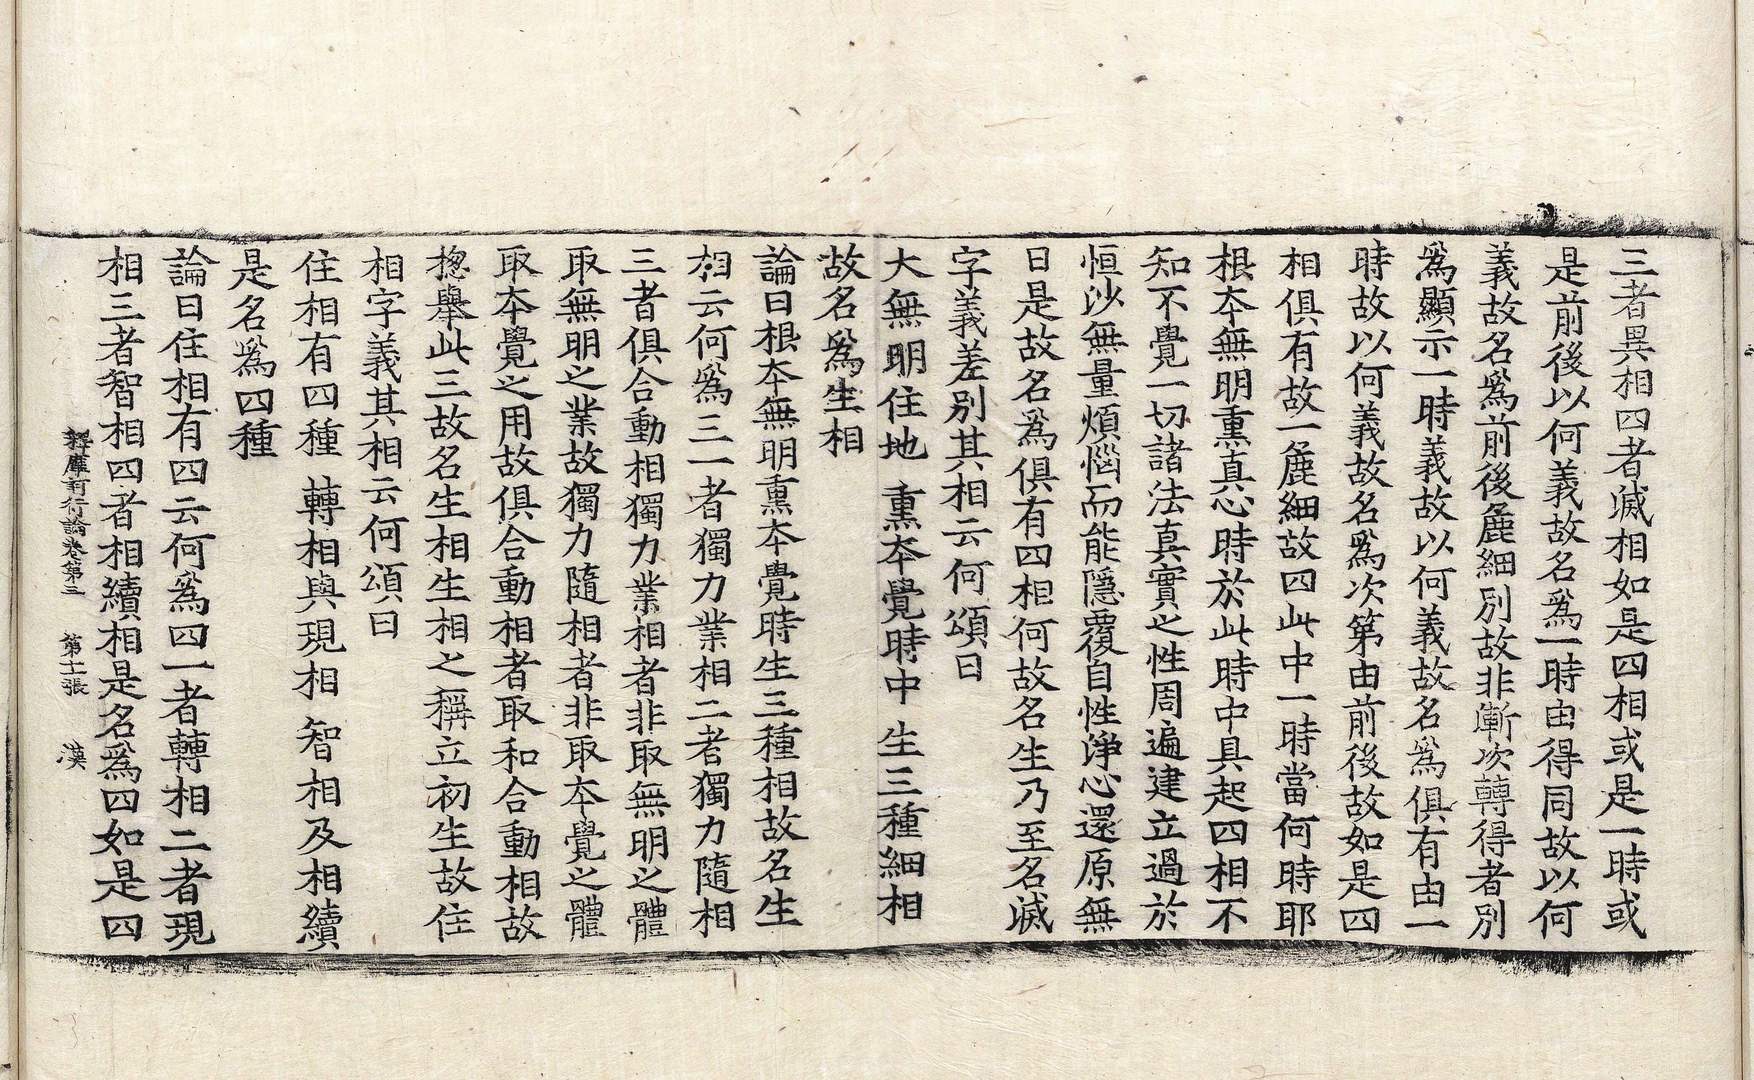 三者異相四者滅相如是四相或是一時或
是前後以何義故名爲一時由得同故以何
義故名爲前後麁細別故非漸次轉得者別
爲顯示一時義故以何義故名爲俱有由一
時故以何義故名爲次第由前後故如是四
相俱有故一麁細故四此中一時當何時耶
根夲無明熏真心時於此時中具起四相不
知不覺一切諸法真實之性周遍建立過於
恒沙無量煩惱而能隱覆自性淨心還原無
日是故名爲俱有四相何故名生乃至名滅
字義差別其相云何頌曰
大無明住地 熏夲覺時中 生三種細相
故名爲生相
論曰根夲無明熏夲覺時生三種相故名生
相云何爲三一者獨力業相二者獨力隨相
三者俱合動相獨力業相者非取無明之體
取無明之業故獨力隨相者非取夲覺之體
取夲覺之用故俱合動相者取和合動相故
揔舉此三故名生相生相之稱立初生故住
相字義其相云何頌曰
住相有四種 轉相與現相 智相及相續
是名爲四種
論曰住相有四云何爲四一者轉相二者現
相三者智相四者相續相是名爲四如是四
釋摩訶衍論卷第三 第十一張 漢